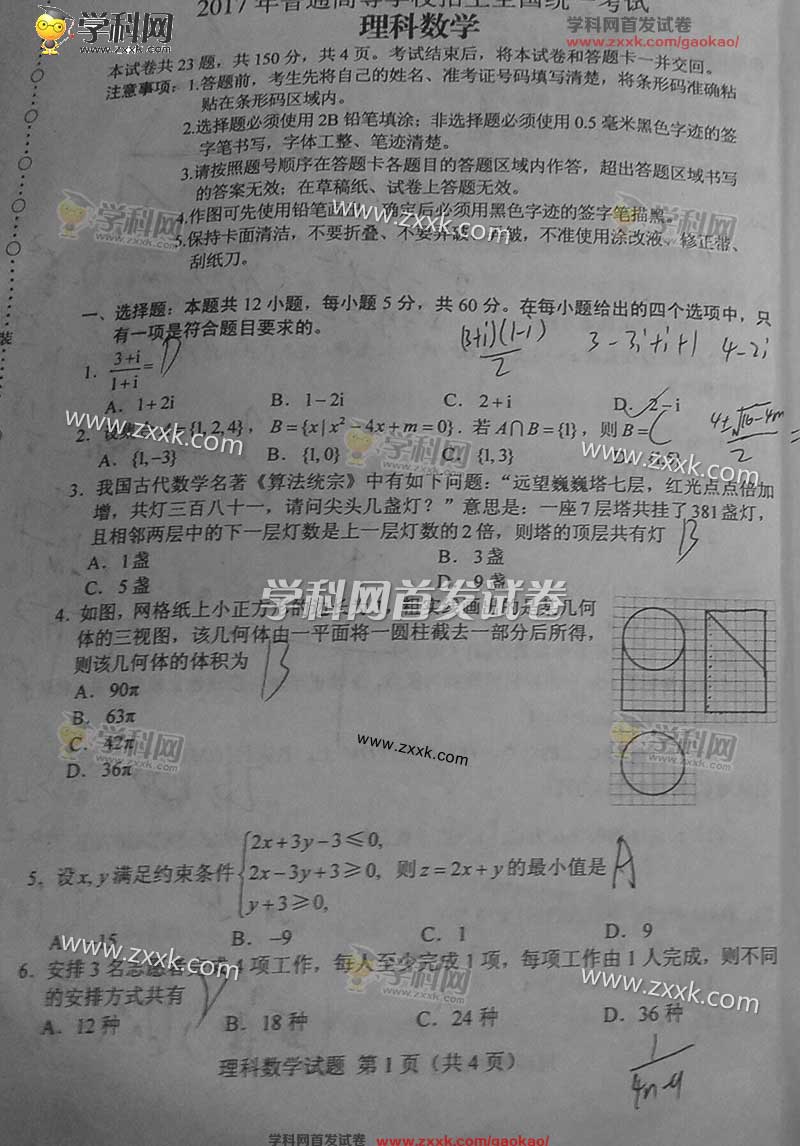 2017年普通高等学校招生全国统一考试
www.zxxk.com/gaokao/
理科数学
学科网
www.zxxk.com
本试卷共 23 题,共 150 分,共 4 页。考试结束后,将本试卷和答题卡一并交回。
注意事项:1.答题前,考生先将自己的姓名、准考证号码填写清楚,将条形码准确粘
贴在条形码区域内。
2.选择题必须使用 2B 铅笔填涂;非选择题必须使用 0.5 毫米黑色字迹的签
字笔书写,字体工整、笔迹清楚。
3.请按照题号顺序在答题卡各题目的答题区域内作答,超出答题区域书写
的答案无效;在草稿纸、试卷上答题无效。
学科网
学科网
4.作图可先使用铅笔画出,确定后必须用黑色字迹的签字笔描黑。
www.zxxk.com
5.保持卡面清洁,不要折叠、不要弄破、弄皱,不准使用涂改液、修正带、
刮纸刀。
装
一、选择题:本题共 12 小题,每小题 5 分,共 60 分。在每小题给出的四个选项中,只
有一项是符合题目要求的。
(3+i)(1-i)/2 3-3i+i+1 4-2i
1. (3+i)/(1+i)= D
A. 1+2i B. 1-2i C. 2+i D. 2-i
www.zxxk.com
学科网
2. 设集 {1,2,4}, B={x|x²-4x+m=0}. 若 A∩B={1}, 则 B= C
(4±√(16-4m))/2 =
A. {1,-3} B. {1,0} C. {1,3} D.
www.zxxk.com
3. 我国古代数学名著《算法统宗》中有如下问题:“远望巍巍塔七层,红光点点倍加
增,共灯三百八十一,请问尖头几盏灯?”意思是:一座 7 层塔共挂了 381 盏灯,
且相邻两层中的下一层灯数是上一层灯数的 2 倍,则塔的顶层共有灯 B
A. 1 盏 B. 3 盏
C. 5 盏 D. 9 盏
学科网首发试卷
4. 如图,网格纸上小正方形的 几何
体的三视图,该几何体由一平面将一圆柱截去一部分后所得,
则该几何体的体积为 B
A. 90π
B. 63π
C. 42π
D. 36π
学科网
www.zxxk.com
学科网
5. 设 x, y 满足约束条件 {2x+3y-3⩽0, 2x-3y+3⩾0, y+3⩾0, 则 z=2x+y 的最小值是 A
A. -15 B. -9 C. 1 D. 9
www.zxxk.com
学科网
6. 安排 3 名志愿者完成 4 项工作,每人至少完成 1 项,每项工作由 1 人完成,则不同
的安排方式共有 D
www.zxxk.com
A. 12 种 B. 18 种 C. 24 种 D. 36 种
理科数学试题 第 1 页(共 4 页)
学科网首发试卷 www.zxxk.com/gaokao/